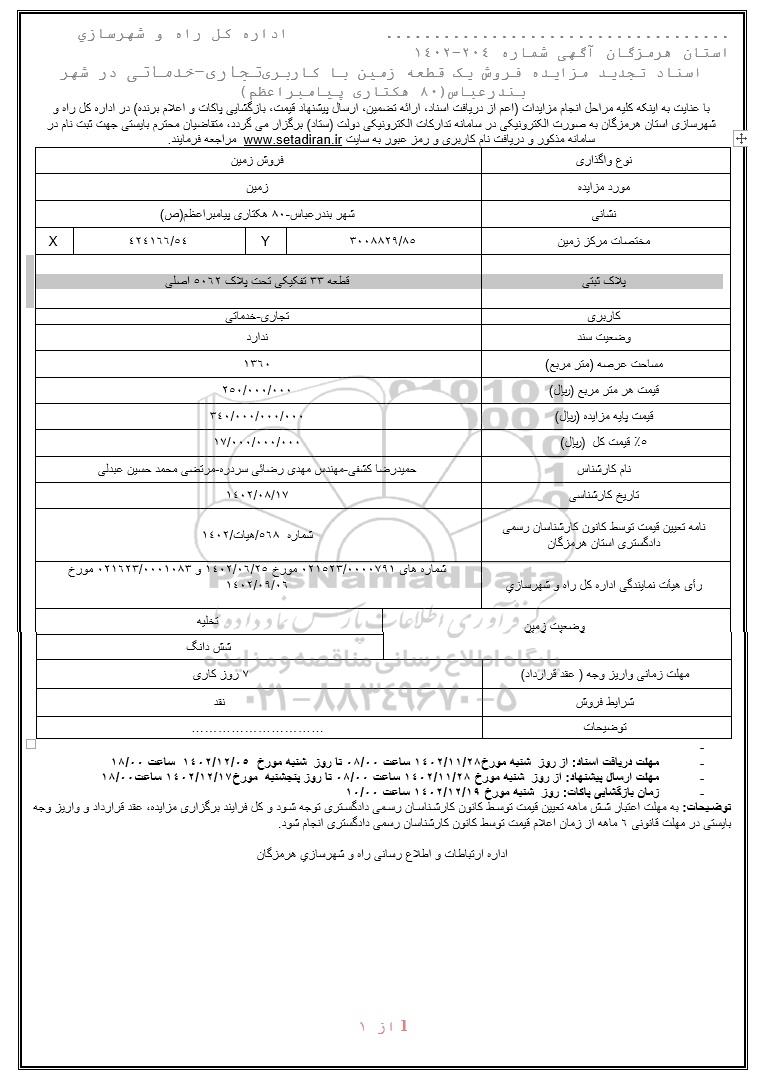 ................................... اداره کل راه و شهرسازي
استان هرمزگان آگهی شماره ۲۰۴-۱۴۰۲
اسناد تجدید مزایده فروش یک قطعه زمین با کاربری‌تجاری-خدماتی در شهر
بندرعباس(۸۰ هکتاری پیامبراعظم)
با عنایت به اینکه کلیه مراحل انجام مزایدات (اعم از دریافت اسناد، ارائه تضمین، ارسال پیشنهاد قیمت، بازگشایی پاکات و اعلام برنده) در اداره کل راه و
شهرسازی استان هرمزگان به صورت الکترونیکی در سامانه تدارکات الکترونیکی دولت (ستاد) برگزار می گردد، متقاضیان محترم بایستی جهت ثبت نام در
سامانه مذکور و دریافت نام کاربری و رمز عبور به سایت www.setadiran.ir مراجعه فرمایند.
نوع واگذاری فروش زمین
مورد مزایده زمین
نشانی شهر بندرعباس-۸۰ هکتاری پیامبراعظم(ص)
مختصات مرکز زمین ۳۰۰۸۸۲۹/۸۵ Y ۴۲۴۱۶۶/۵۴ X
پلاک ثبتی قطعه ۳۳ تفکیکی تحت پلاک ۵۰۶۲ اصلی
کاربری تجاری-خدماتی
وضعیت سند ندارد
مساحت عرصه (متر مربع) ۱۳۶۰
قیمت هر متر مربع (ریال) ۲۵۰/۰۰۰/۰۰۰
قیمت پایه مزایده (ریال) ۳۴۰/۰۰۰/۰۰۰/۰۰۰
۵٪ قیمت کل (ریال) ۱۷/۰۰۰/۰۰۰/۰۰۰
نام کارشناس حمیدرضا کشفی-مهندس مهدی رضائی سردره-مرتضی محمد حسین عبدلی
تاریخ کارشناسی ۱۴۰۲/۰۸/۱۷
نامه تعیین قیمت توسط کانون کارشناسان رسمی
دادگستری استان هرمزگان
شماره ۵۶۸/هیات/۱۴۰۲
رأی هیأت نمایندگی اداره کل راه و شهرسازي
شماره های ۰۲۱۵۲۳/۰۰۰۰۷۹۱ مورخ ۱۴۰۲/۰۶/۲۵ و ۰۲۱۶۲۳/۰۰۰۱۰۸۳ مورخ
۱۴۰۲/۰۹/۰۶
وضعیت زمین تخلیه
شش دانگ
مهلت زمانی واریز وجه ( عقد قرارداد) ۷ روز کاری
شرایط فروش نقد
توضیحات ..............................
-
- مهلت دریافت اسناد: از روز شنبه مورخ۱۴۰۲/۱۱/۲۸ ساعت ۰۸/۰۰ تا روز شنبه مورخ ۱۴۰۲/۱۲/۰۵ ساعت ۱۸/۰۰
- مهلت ارسال پیشنهاد: از روز شنبه مورخ ۱۴۰۲/۱۱/۲۸ ساعت ۰۸/۰۰ تا روز پنجشنبه مورخ۱۴۰۲/۱۲/۱۷ ساعت۱۸/۰۰
- زمان بازگشایی پاکات: روز شنبه مورخ ۱۴۰۲/۱۲/۱۹ ساعت ۱۰/۰۰
توضیحات: به مهلت اعتبار شش ماهه تعیین قیمت توسط کانون کارشناسان رسمی دادگستری توجه شود و کل فرایند برگزاری مزایده، عقد قرارداد و واریز وجه
بایستی در مهلت قانونی ۶ ماهه از زمان اعلام قیمت توسط کانون کارشناسان رسمی دادگستری انجام شود.
اداره ارتباطات و اطلاع رسانی راه و شهرسازي هرمزگان
1 از ۱
ParsNamadData
مرکز فرآوری اطلاعات پارس نماد داده ها
پایگاه اطلاع رسانی مناقصه و مزایده
۰۲۱-۸۸۳۴۹۶۷۰-۵